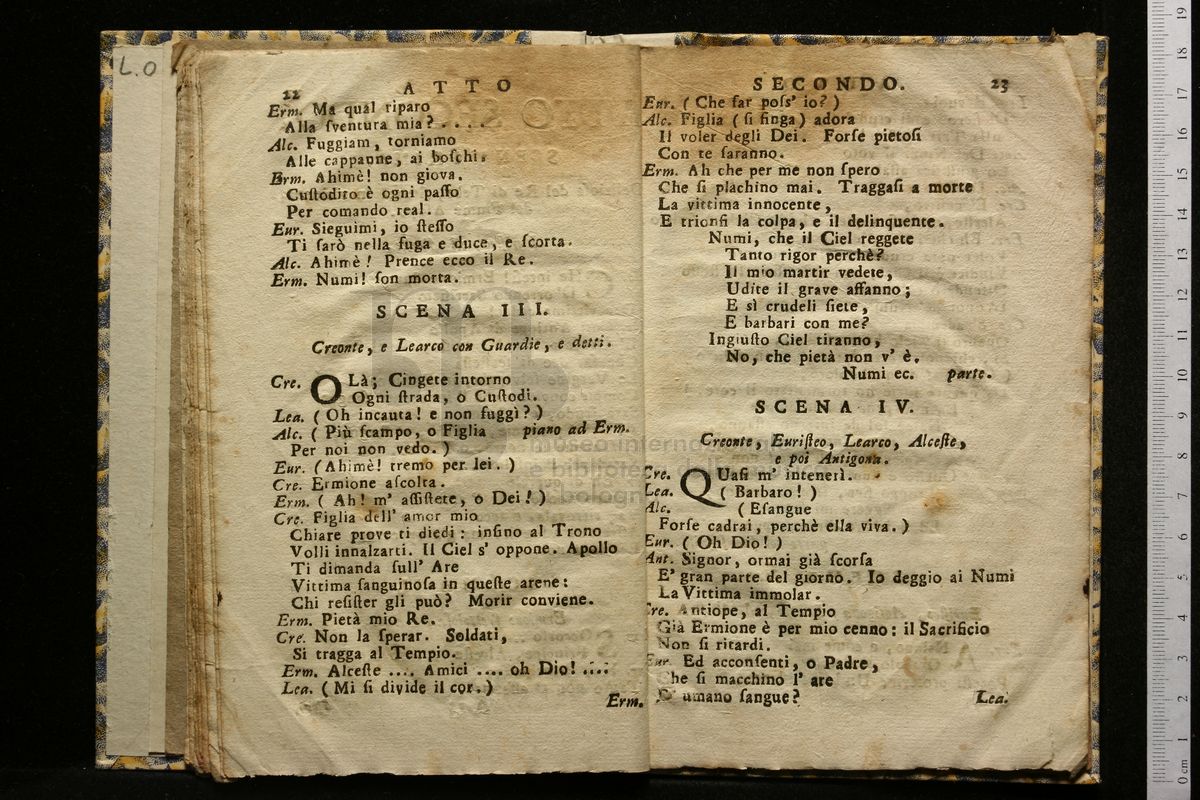 L.O
22
ATTO
Erm. Ma qual riparo
Alla ſventura mia? . . . .
Alc. Fuggiam, torniamo
Alle cappanne, ai boſchi.
Erm. Ahimè! non giova.
Cuſtódito è ogni paſſo
Per comando real.
Eur. Sieguimi, io ſteſſo
Ti ſarò nella fuga e duce, e ſcorta.
Alc. Ahimè! Prence ecco il Re.
Erm. Numi! ſon morta.
SCENA III.
Creonte, e Learco con Guardie, e detti.
Cre. OLà; Cingete intorno
Ogni ſtrada, o Cuſtodi.
Lea. ( Oh incauta! e non fuggì? )
Alc. ( Più ſcampo, o Figlia piano ad Erm.
Per noi non vedo. )
Eur. ( Ahimè! tremo per lei. )
Cre. Ermione aſcolta.
Erm. ( Ah! m' aſſiſtete, o Dei! )
Cre. Figlia dell' amor mio
Chiare prove ti diedi: inſino al Trono
Volli innalzarti. Il Ciel s' oppone. Apollo
Ti dimanda ſull' Are
Vittima ſanguinoſa in queſte arene:
Chi reſiſter gli può? Morir conviene.
Erm. Pietà mio Re.
Cre. Non la ſperar. Soldati,
Si tragga al Tempio.
Erm. Alceſte .... Amici .... oh Dio! ....
Lea. ( Mi ſi divide il cor. )
Erm.
SECONDO.
23
Eur. ( Che far poſs' io? )
Alc. Figlia ( ſi finga ) adora
Il voler degli Dei. Forſe pietoſi
Con te ſaranno.
Erm. Ah che per me non ſpero
Che ſi plachino mai. Traggaſi a morte
La vittima innocente,
E trionfi la colpa, e il delinquente.
Numi, che il Ciel reggete
Tanto rigor perchè?
Il mio martir vedete,
Udite il grave affanno;
E sì crudeli ſiete,
E barbari con me?
Ingiuſto Ciel tiranno,
No, che pietà non v' è.
Numi ec. parte.
SCENA IV.
Creonte, Euriſteo, Learco, Alceſte,
e poi Antigona.
Cre. QUaſi m' intenerì.
Lea. ( Barbaro! )
Alc. ( Eſangue
Forſe cadrai, perchè ella viva. )
Eur. ( Oh Dio! )
Ant. Signor, ormai già ſcorſa
E' gran parte del giorno. Io deggio ai Numi
La Vittima immolar.
Cre. Antiope, al Tempio
Già Ermione è per mio cenno: il Sacrificio
Non ſi ritardi.
Eur. Ed acconſenti, o Padre,
Che ſi macchino l' are
D' umano ſangue?
Lea.